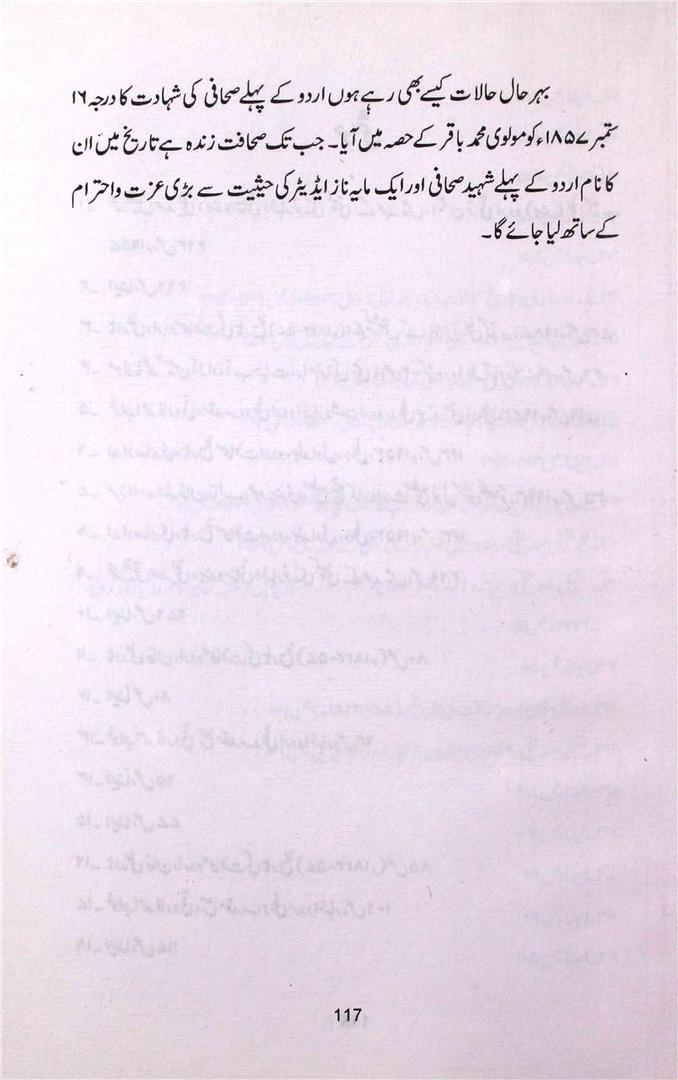 بہر حال حالات کیسے بھی رہے ہوں اردو کے پہلے صحافی کی شہادت کا درجہ ۱۶
ستمبر ۱۸۵۷ء کو مولوی محمد باقر کے حصہ میں آیا۔ جب تک صحافت زندہ ہے تاریخ میں ان
کا نام اردو کے پہلے شہید صحافی اور ایک مایہ ناز ایڈیٹر کی حیثیت سے بڑی عزت و احترام
کے ساتھ لیا جائے گا۔
117